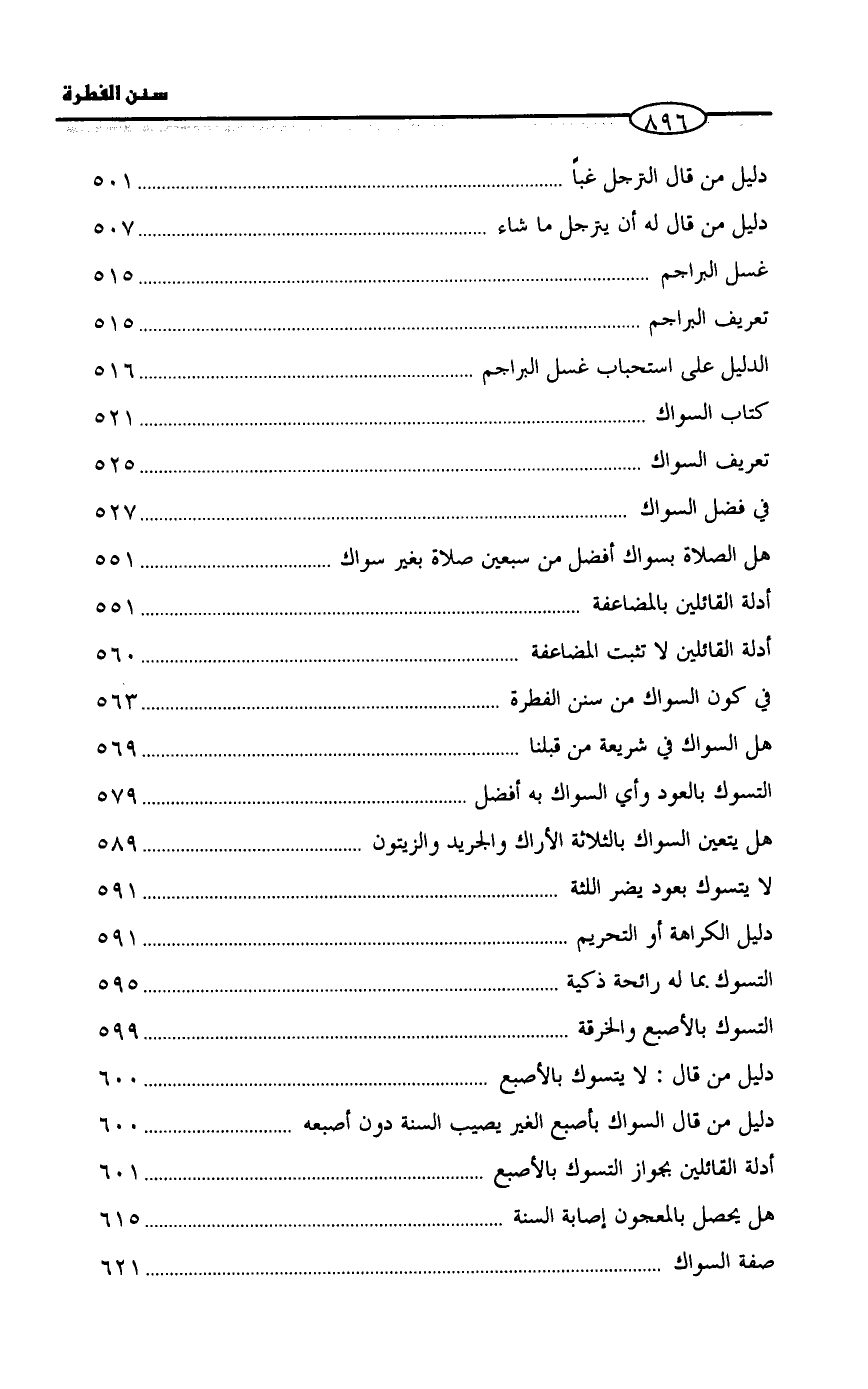 سنن الفطرة
٨٩٦
دليل من قال الترجل غباً ........ ٥٠١
دليل من قال له أن يترجل ما شاء ........ ٥٠٧
غسل البراجم ........ ٥١٥
تعريف البراجم ........ ٥١٥
الدليل على استحباب غسل البراجم ........ ٥١٦
كتاب السواك ........ ٥٢١
تعريف السواك ........ ٥٢٥
في فضل السواك ........ ٥٢٧
هل الصلاة بسواك أفضل من سبعين صلاة بغير سواك ........ ٥٥١
أدلة القائلين بالمضاعفة ........ ٥٥١
أدلة القائلين لا تثبت المضاعفة ........ ٥٦٠
في كون السواك من سنن الفطرة ........ ٥٦٣
هل السواك في شريعة من قبلنا ........ ٥٦٩
التسوك بالعود وأي السواك به أفضل ........ ٥٧٩
هل يتعين السواك بالثلاثة الأراك والجريد والزيتون ........ ٥٨٩
لا يتسوك بعود يضر اللثة ........ ٥٩١
دليل الكراهة أو التحريم ........ ٥٩١
التسوك بما له رائحة ذكية ........ ٥٩٥
التسوك بالأصبع والخرقة ........ ٥٩٩
دليل من قال : لا يتسوك بالأصبع ........ ٦٠٠
دليل من قال السواك بأصبع الغير يصيب السنة دون أصبعه ........ ٦٠٠
أدلة القائلين بجواز التسوك بالأصبع ........ ٦٠١
هل يحصل بالمعجون إصابة السنة ........ ٦١٥
صفة السواك ........ ٦٢١